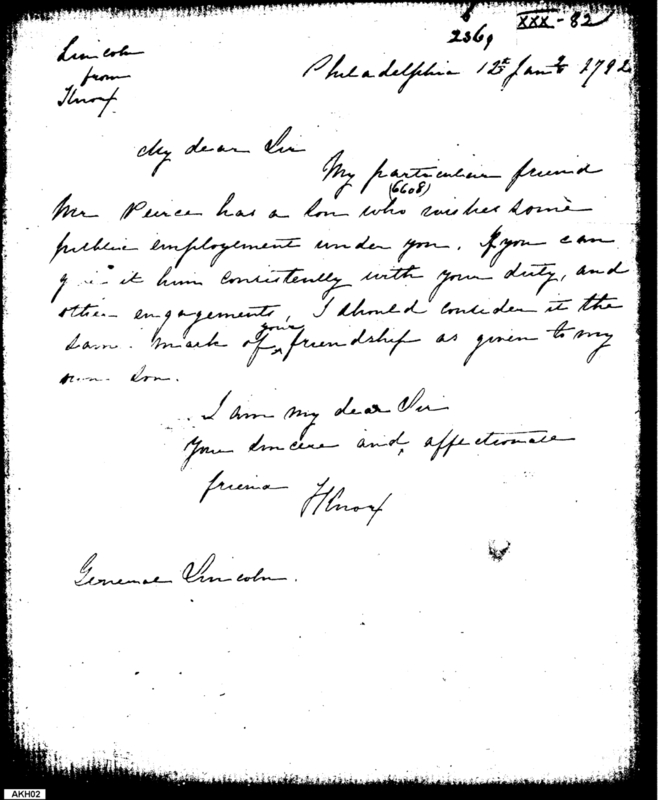 XXX-82
2369
Lincoln
from
Knox
Philadelphia 12th Jany 1792
My dear Sir
My particular friend
(6608)
Mr Peirce has a son who wishes some
public employement under you. If you can
it him consistently with your duty, and
other engagements, I should consider it the
same mark of your friendship as given to my
own son.
I am my dear Sir
Your sincere and affectionate
friend
HKnox
General Lincoln.
AKH02